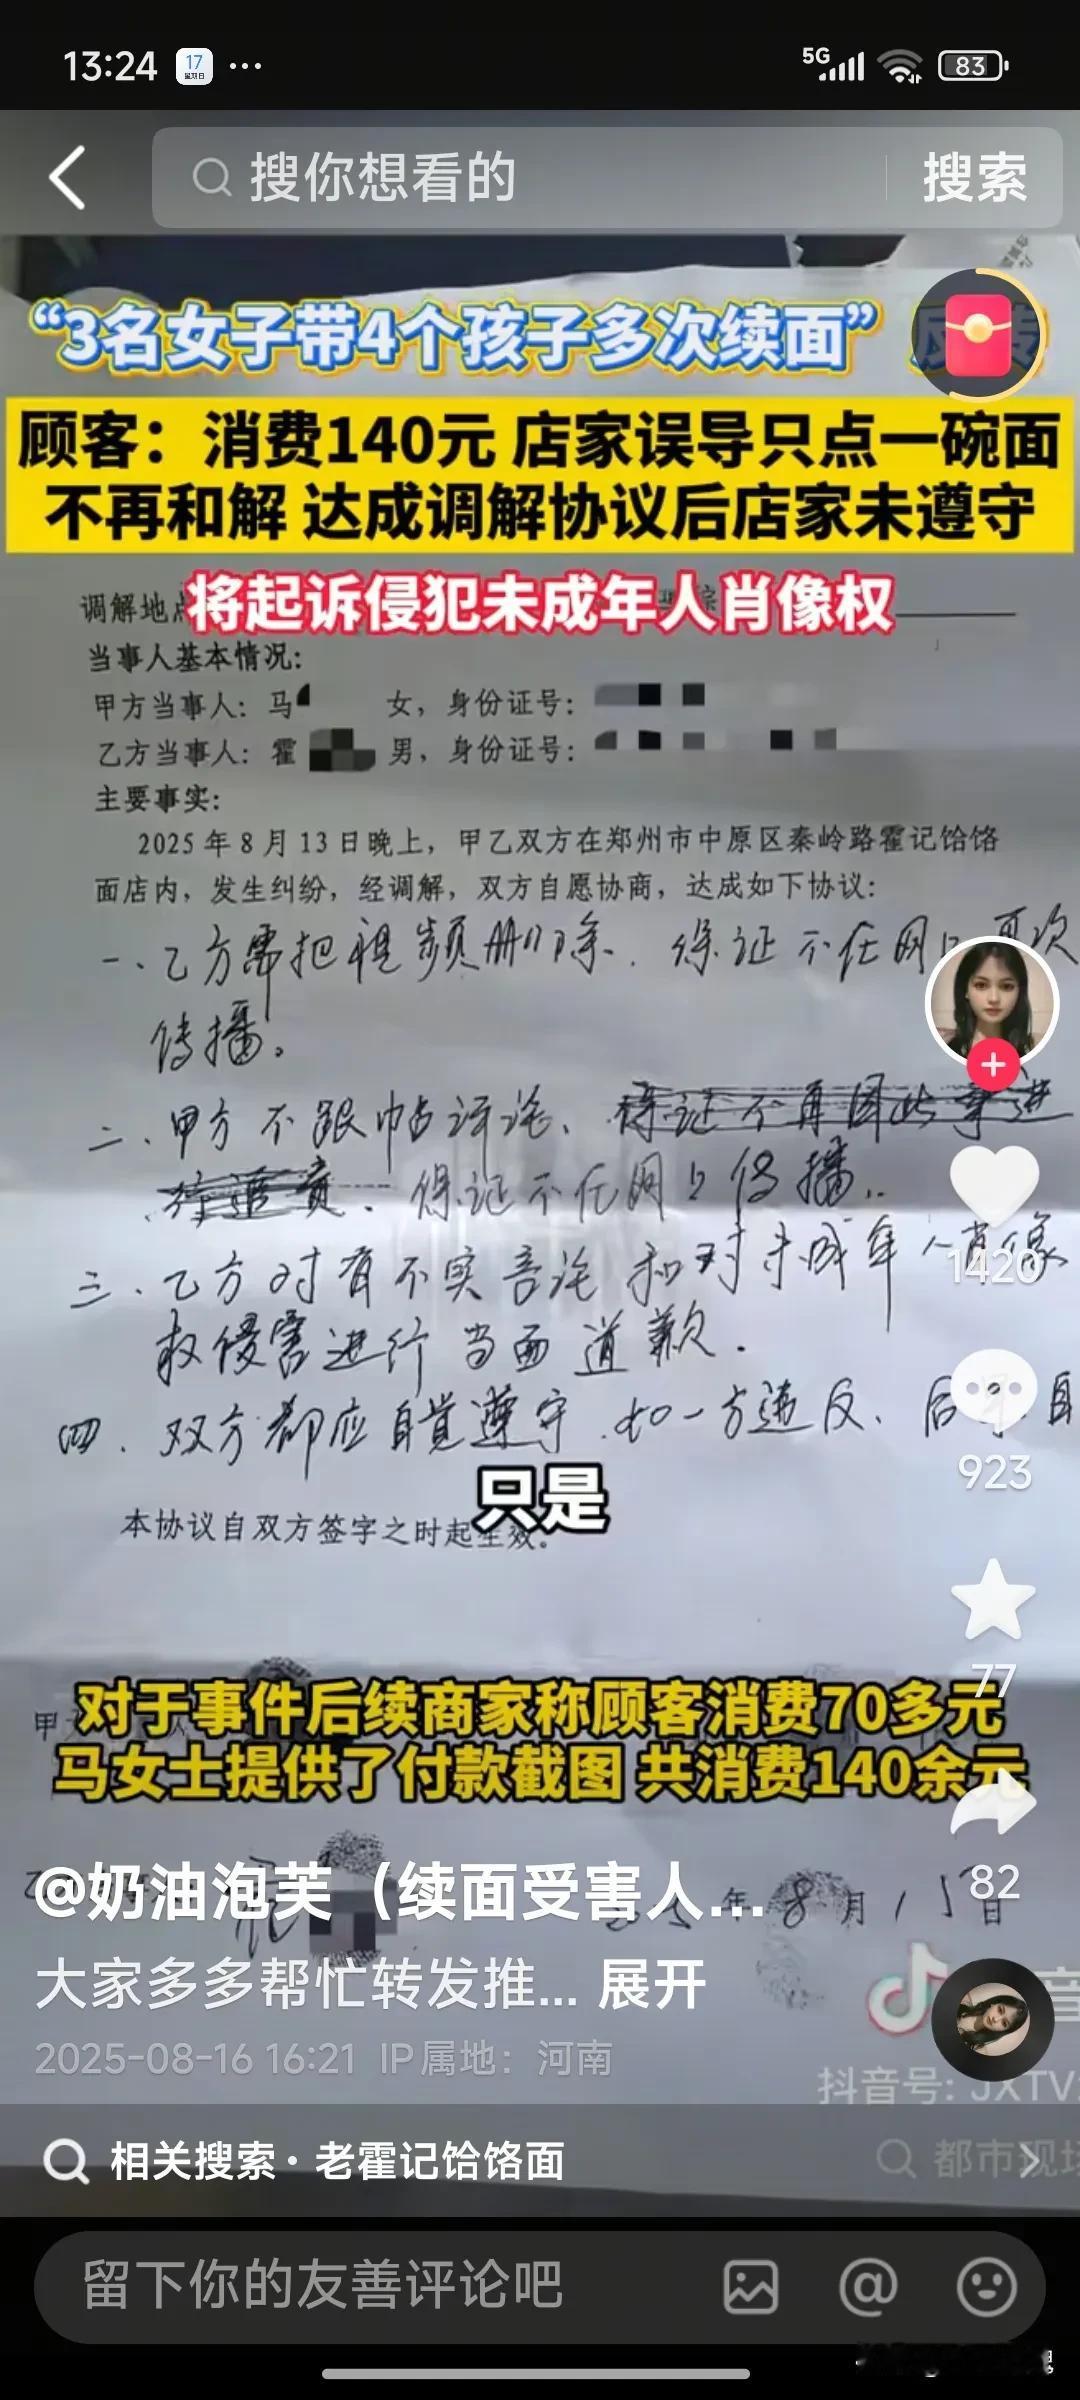 13:24
17
星期日
5G
83
搜你想看的
搜索
“3名女子带4个孩子多次续面”
顾客：消费140元 店家误导只点一碗面
不再和解 达成调解协议后店家未遵守
将起诉侵犯未成年人肖像权
调解地点
当事人基本情况：
甲方当事人：马 女，身份证号：
乙方当事人：霍 男，身份证号：
主要事实：
2025年8月13日晚上，甲乙双方在郑州市中原区秦岭路霍记饸饹
面店内，发生纠纷，经调解，双方自愿协商，达成如下协议：
一、乙方需把视频删除．保证不在网上再次
传播。
二、甲方不跟帖评论、保证不再因此事进
行追责．保证不在网上传播．
三、乙方对有不实言论和对未成年人肖像
权侵害进行当面道歉．
四、双方都应自觉遵守．如一方违反、后果自
只是
本协议自双方签字之时起生效。
对于事件后续商家称顾客消费70多元
马女士提供了付款截图 共消费140余元
1420
923
77
82
@奶油泡芙（续面受害人...
年8月15日
大家多多帮忙转发推... 展开
2025-08-16 16:21 IP属地：河南
抖音号：JXTV
相关搜索·老霍记饸饹面
都市现场
留下你的友善评论吧